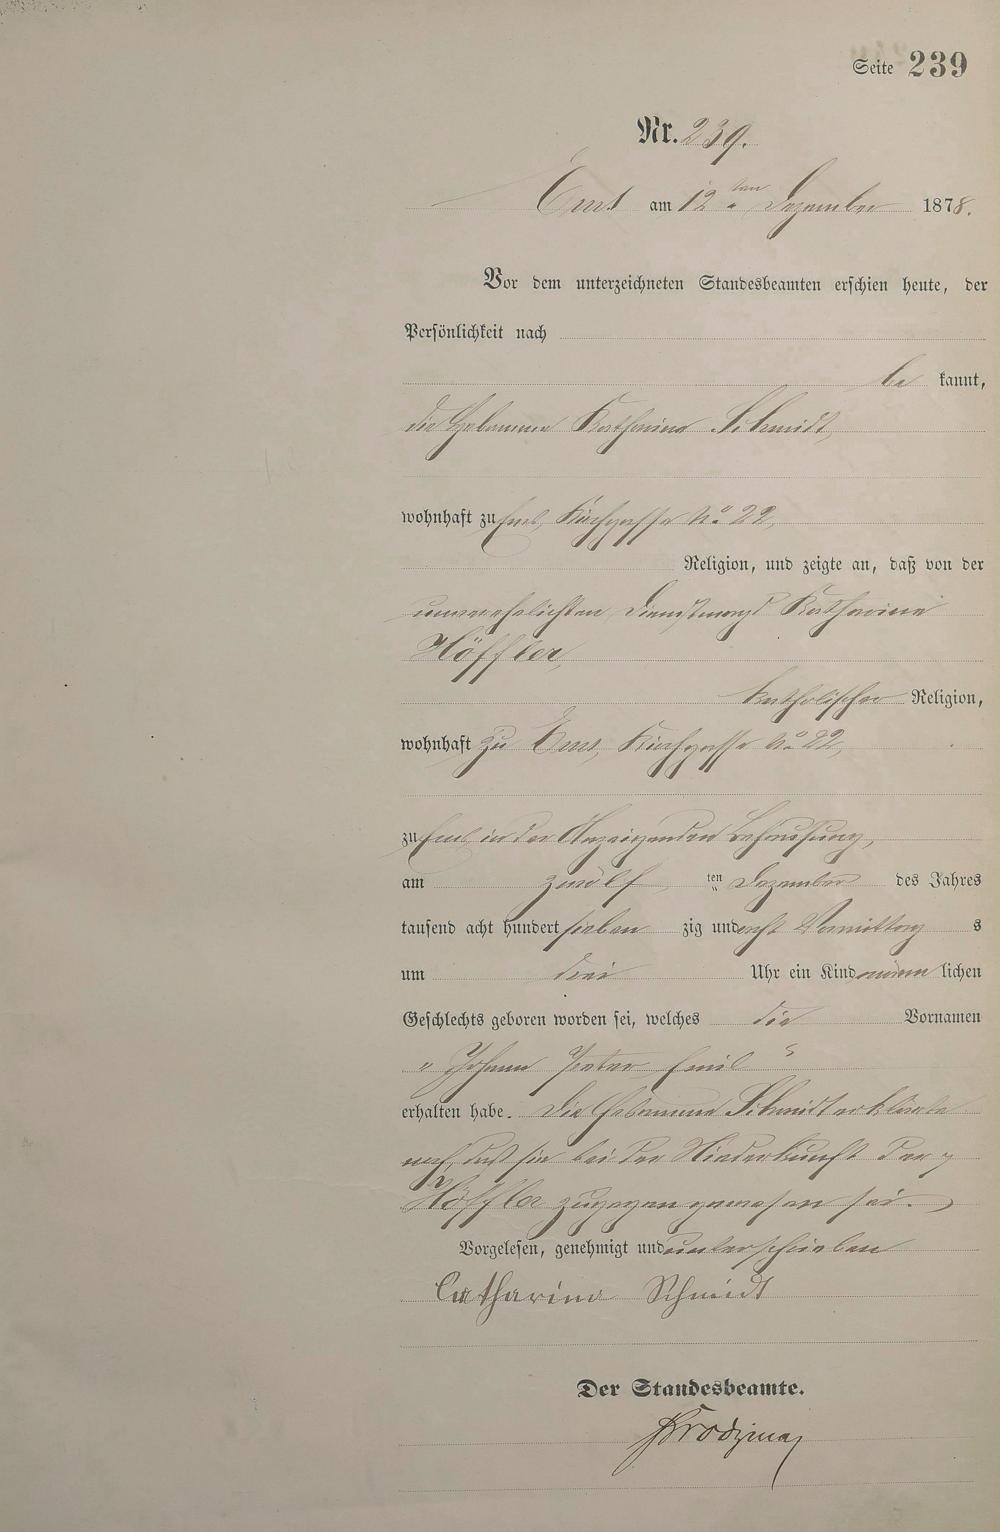 Seite 239
Nr. 239.
Ems am 12 ten Dezember 1878.
Vor dem unterzeichneten Standesbeamten erschien heute, der
Persönlichkeit nach
be kannt,
die Hebamme Katharina Schmidt,
wohnhaft zu Ems, Kirchgasse No 22,
Religion, und zeigte an, daß von der
unverehelichten Dienstmagd Katharina
Höffler,
katholischer Religion,
wohnhaft zu Ems, Kirchgasse No 22,
zu Ems in der Anzeigenden Behausung,
am zwölf ten Dezember des Jahres
tausend acht hundert sieben zig und acht Vormittag s
um drei Uhr ein Kind männ lichen
Geschlechts geboren worden sei, welches die Vornamen
„Johann Peter Emil“
erhalten habe. Die Hebamme Schmidt erklärte
noch, daß sie bei der Niederkunft der
Höffler zugegen gewesen sei.
Vorgelesen, genehmigt und unterschrieben
Catharina Schmidt
Der Standesbeamte.